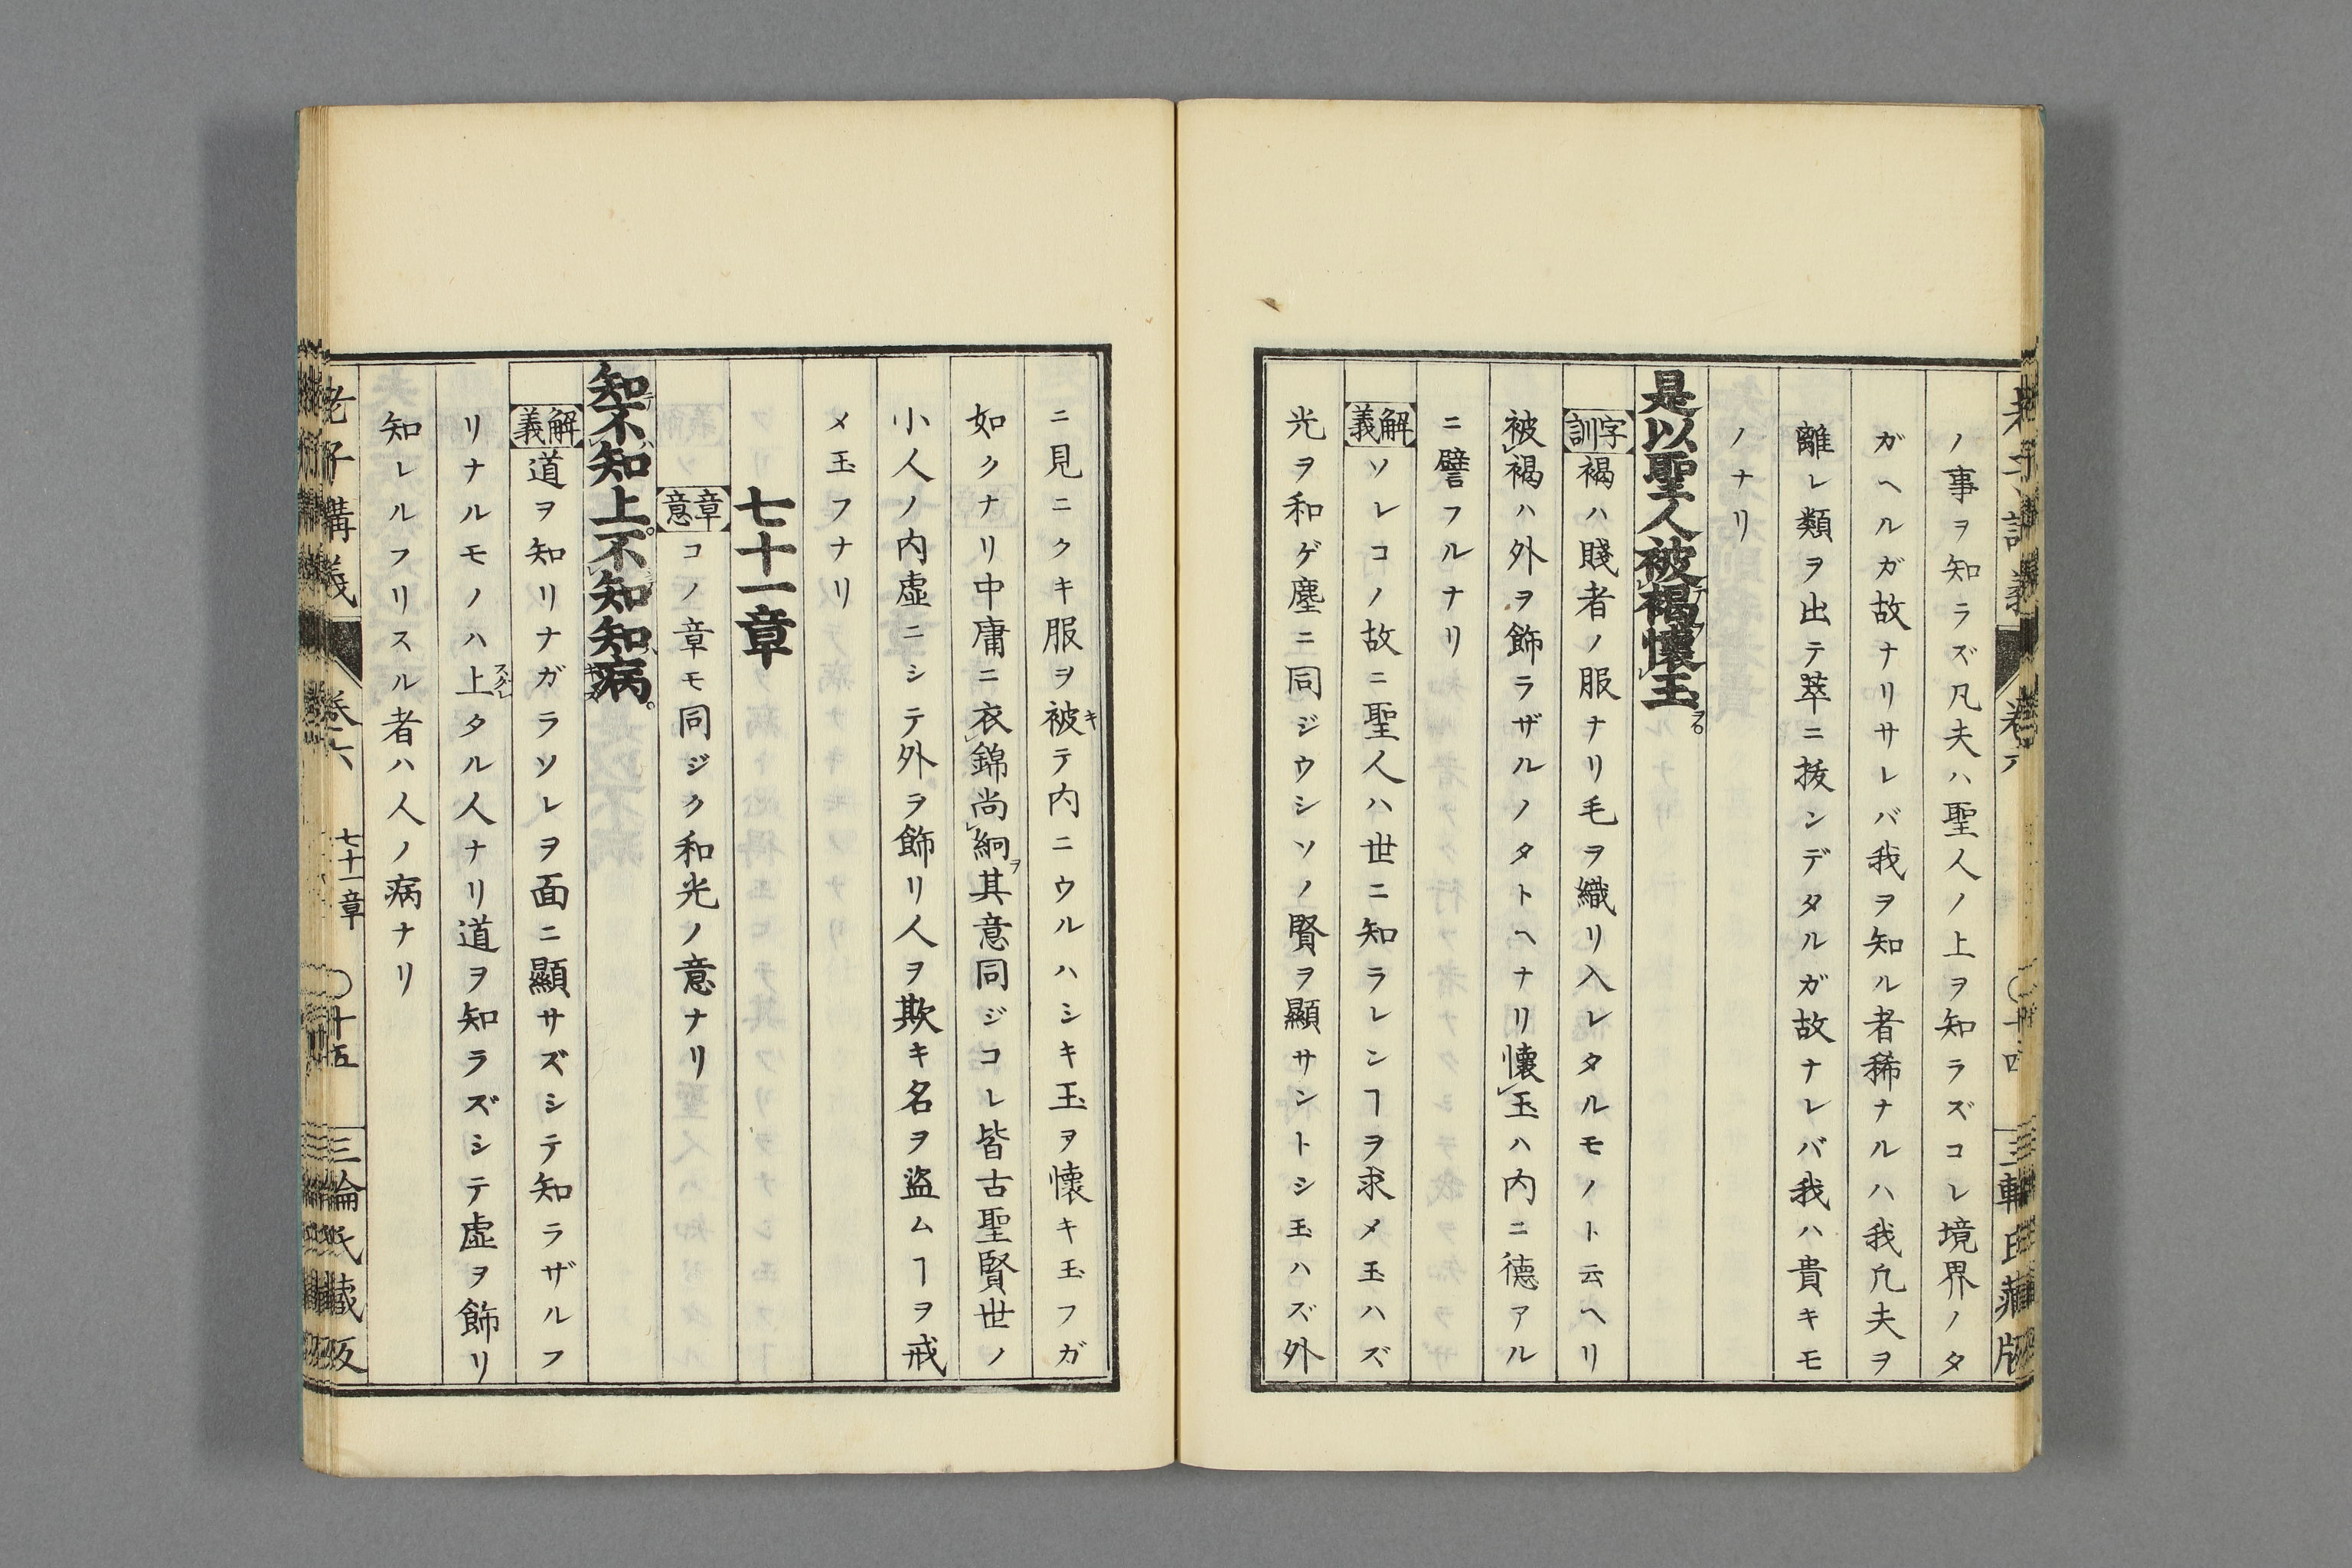 ノ事ヲ知ラズ凡夫ハ聖人ノ上ヲ知ラズコレ境界ノタ
ガヘルガ故ナリサレバ我ヲ知ル者稀ナルハ我凡夫ヲ
離レ類ヲ出テ萃ニ抜ンデタルガ故ナレバ我ハ貴キモ
ノナリ
是以聖人被褐懷玉ヲ。
字訓 褐ハ賤者ノ服ナリ毛ヲ織リ入レタルモノト云ヘリ
被レ褐ハ外ヲ飾ラザルノタトヘナリ懷レ玉ハ内ニ德アル
ニ譬フルナリ
解義 ソレコノ故ニ聖人ハ世ニ知ラレンヿヲ求メ玉ハズ
光ヲ和ゲ塵ニ同ジウシソノ賢ヲ顯サントシ玉ハズ外
ニ見ニクキ服ヲ被キテ内ニウルハシキ玉ヲ懷キ玉フガ
如クナリ中庸ニ衣レ錦尚レ絅ヲ其意同ジコレ皆古聖賢世ノ
小人ノ内虛ニシテ外ヲ飾リ人ヲ欺キ名ヲ盜ムヿヲ戒
メ玉フナリ
七十一章
章意 コノ章モ同ジク和光ノ意ナリ
知不知上。不知知病。
解義 道ヲ知リナガラソレヲ面ニ顯サズシテ知ラザルフ
リナルモノハ上スグレタル人ナリ道ヲ知ラズシテ虛ヲ飾リ
知レルフリスル者ハ人ノ病ナリ
老子講義 卷六 七十一章 〇十五 三輪氏藏版